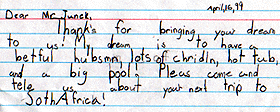 April,16,99
Dear Mr. Junek,
Thanks for bringing your dream
to us! My dream is to have a
betful hubsmn, lots of chridln, hot tub,
and a big pool. Pleas come and
tele us about your next trip to
SothAfrica!